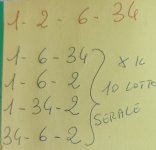 1-2-6-34
1-6-34
1-6-2
1-34-2
34-6-2
X IL
10 LOTTO
SERALE